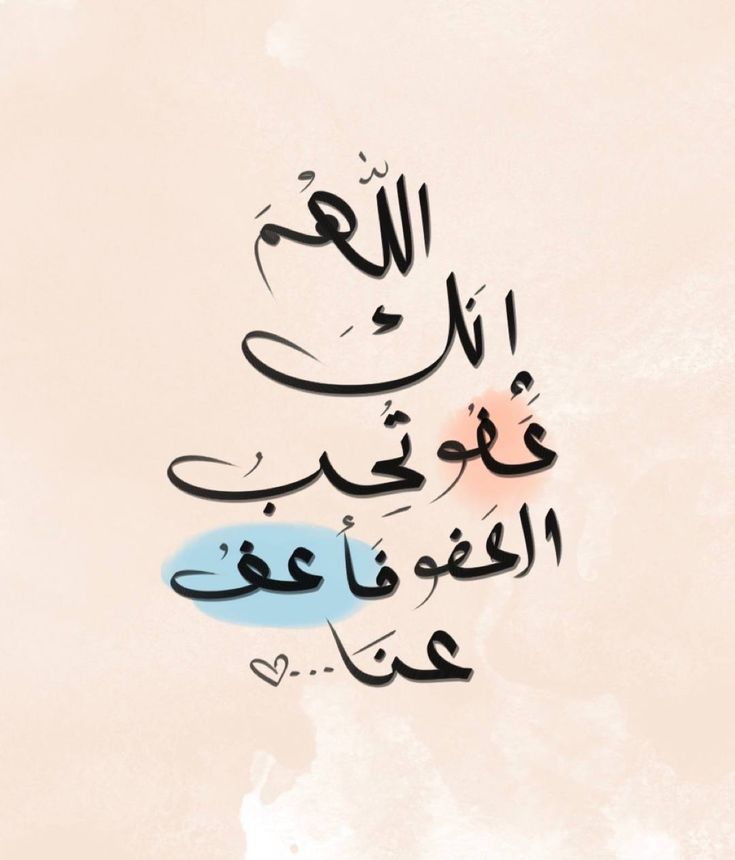 اللّهُمَ
انَكَ
عَفُو تُحِبُ
العَفو فَأعفُ
عنَا...♡